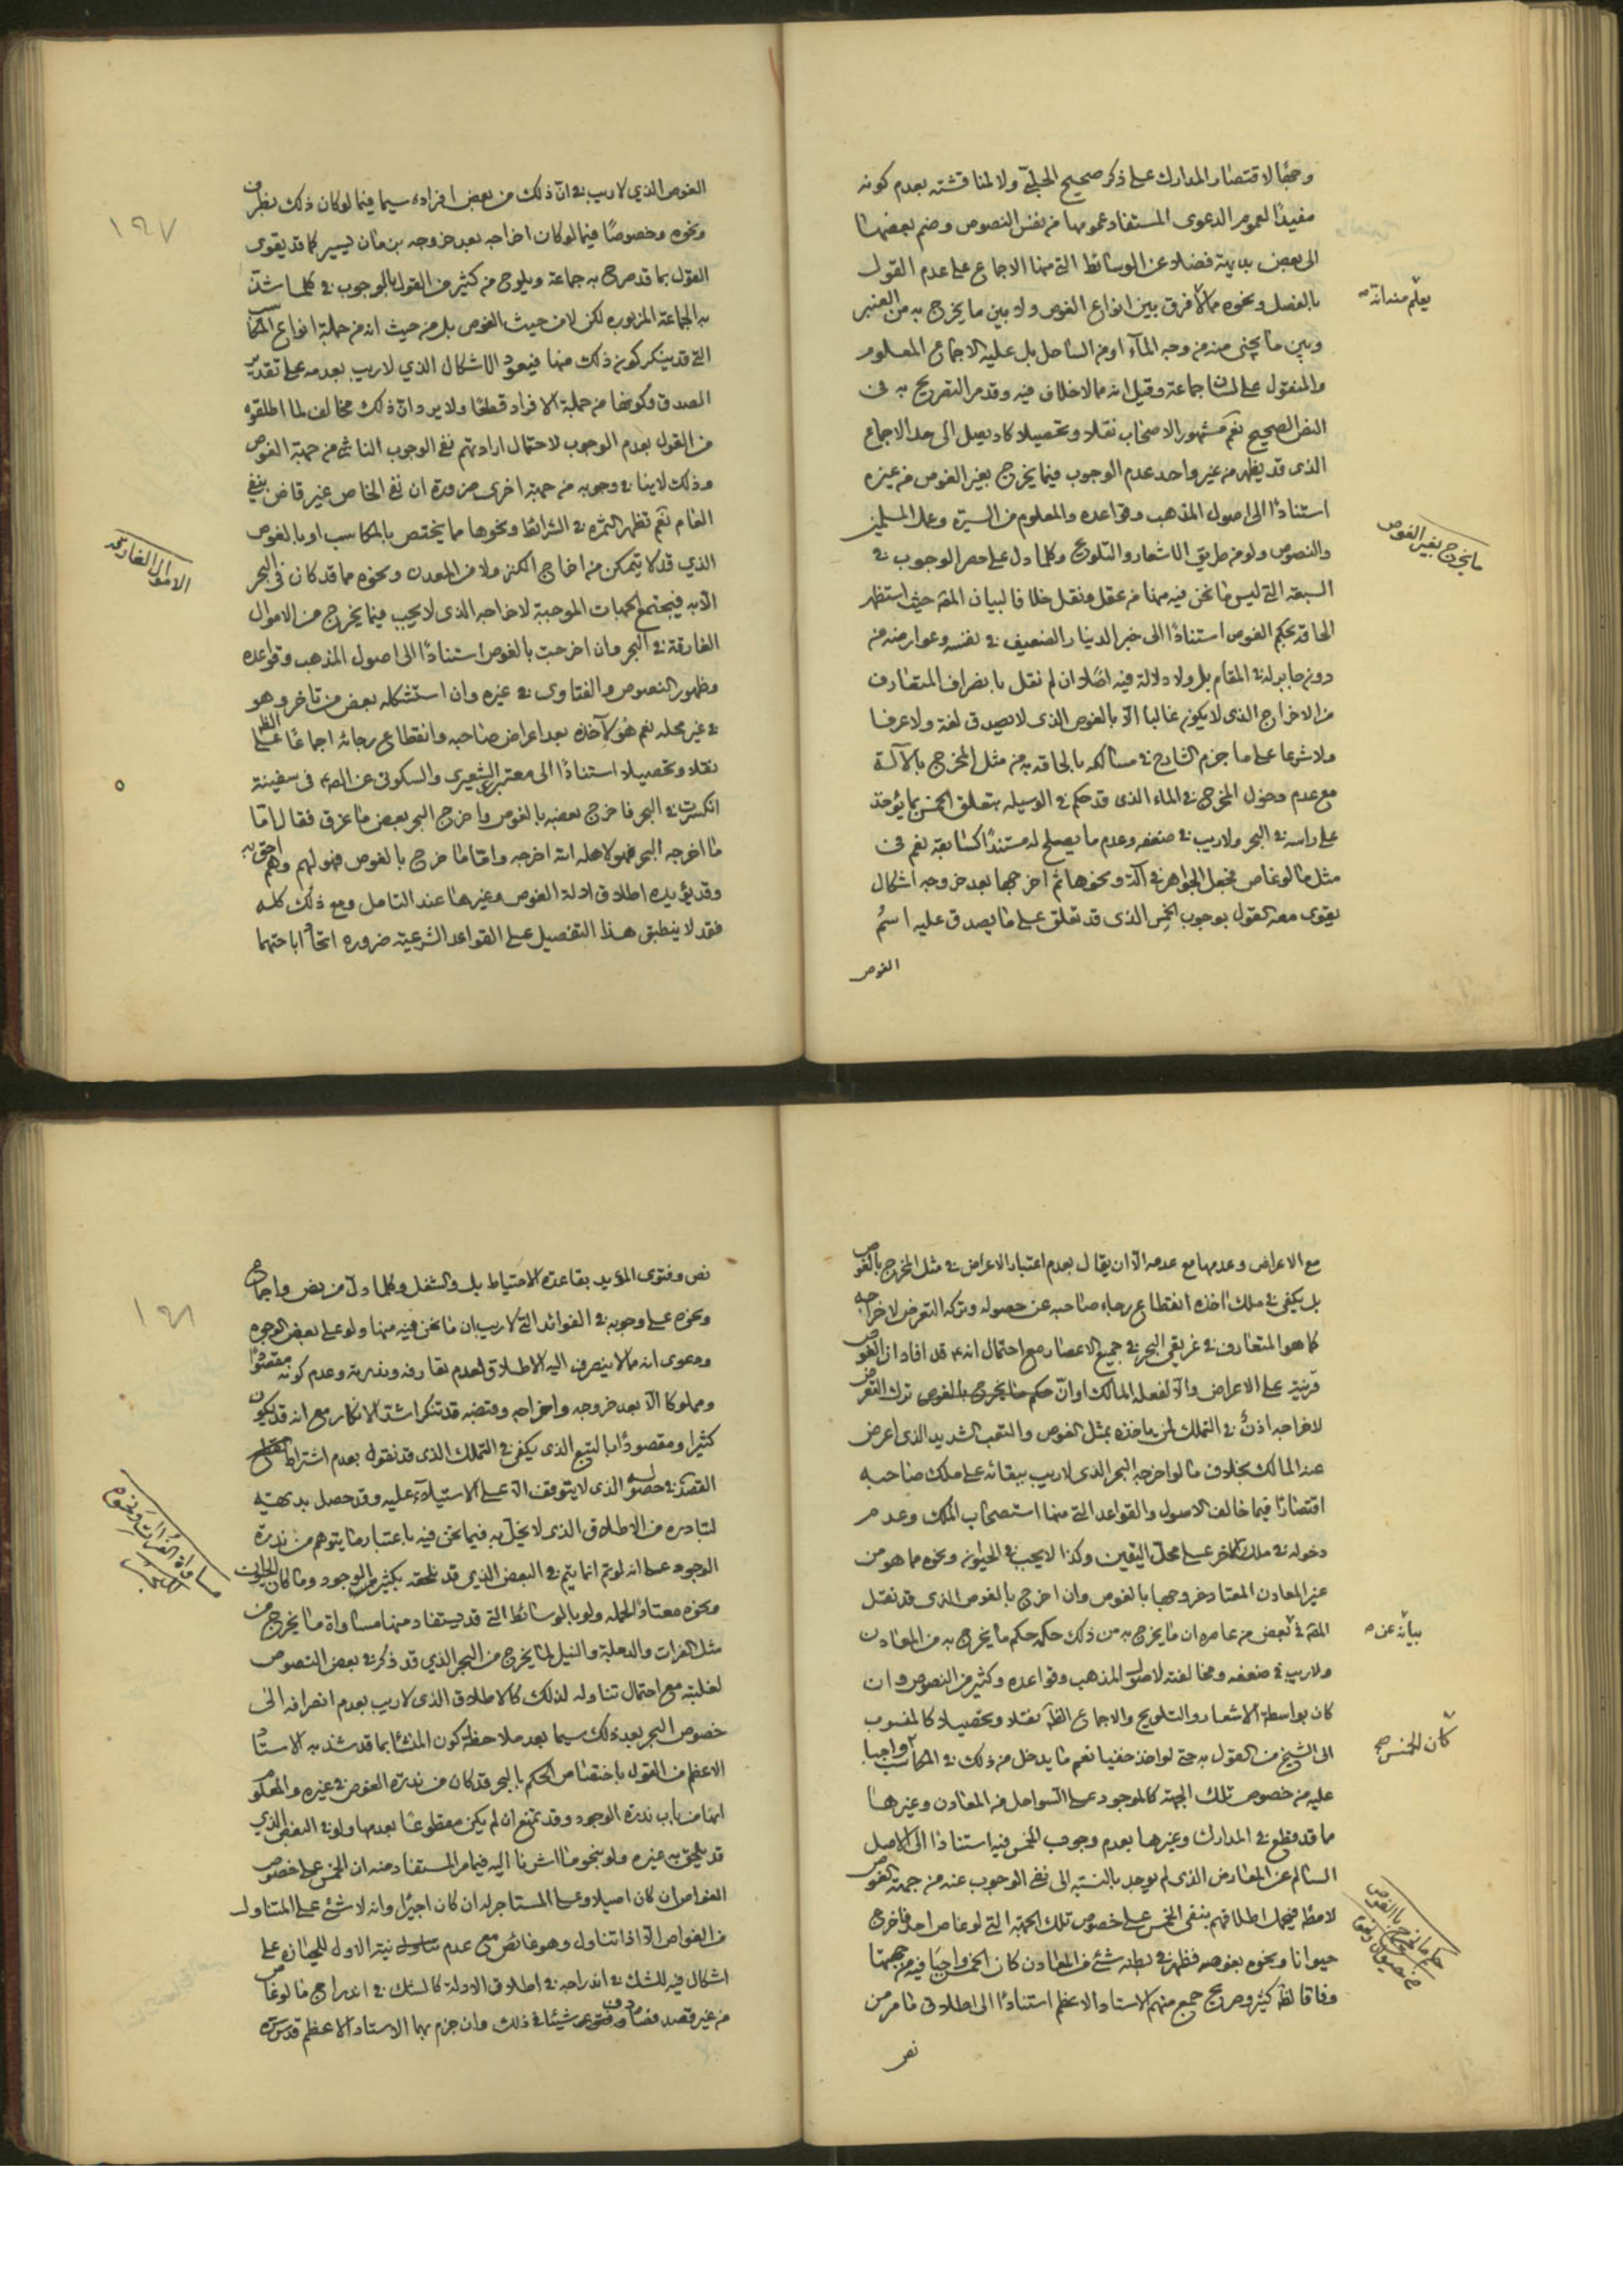 وجهًا لاقتصار المدارك على ذكر صحيح الحلبي ولا لمناقشته بعدم كونه
مفيدًا لعموم الدعوى المستفاد عمومها من نفس النصوص وضم بعضها
الى بعض بداهة فضلا عن الوسائط التي منها الاجماع على عدم القول
بالفصل ونحوه مما لا فرق بين انواع الغوص ولا بين ما يخرج به من العنبر
يعلم منه انه
وبين ما يجنى منه من وجه المآء او من الساحل بل عليه الاجماع المعلوم
والمنقول على لسان جماعة وقيل انه مما لا خلاف فيه وقد مر التصريح به في
النص الصحيح نعم مشهور الاصحاب نقلا وتحصيلا كاد يصل الى حد الاجماع
الذى قد يظهر من غير واحد عدم الوجوب فيما يخرج بغير الغوص من غيره
استنادًا الى اصول المذهب وقواعده والمعلوم من السيرة وعمل المسلمين
ما يخرج بغير الغوص
والنصوص ولو من طريق الاشعار والتلويح وكلما دل على حصر الوجوب في
السبعة التي ليس ما نحن فيه منها من عقل ونقل خلافا لبيان المقـ حيث استظهر
الحاقه بحكم الغوص استنادًا الى خبر الدينار الضعيف في نفسه وعوارضه من
دون جابر له في المقام بل ولا دلالة فيه اصلا ان لم نقل بانصراف المتعارف
من الاخراج الذى لا يكون غالبا الا بالغوص الذى لا يصدق لغة ولا عرفا
ولا شرعا على ما جزم الشارح في مسالكه بالحاقه به من مثل المخرج بالآلة
مع عدم دخول المخرج في الماء الذى قد حكم في الوسيله بتعلق الخمس بما يؤخذ
على راسه في البحر ولا ريب في ضعفه وعدم ما يصلح له مستندًا كسابقه نعم في
مثل ما لو غاص فجعل الجواهر في آلة ونحوها ثم اخرجها بعد خروجه اشكال
يقوى معه القول بوجوب الخمس الذى قد تعلق على ما يصدق عليه اسم
الغوص
١٩٧
الغوص الذي لا ريب في ان ذلك من بعض افراده سيما فيما لو كان ذلك بظرف
ونحوه وخصوصًا فيما لو كان اخراجه بعد خروجه بزمان يسير كما قد يقوى
القول بما قد صرح به جماعة ويلوح من كثير من القول بالوجوب في كلما شذت
به الجماعة المزبوره لكن لا من حيث الغوص بل من حيث انه من جملة انواع المكاسب
التي قد ينكر كون ذلك منها فيعود الاشكال الذي لا ريب بعدمه على تقدير
الصدق وكونها من جملة الافراد قطعًا ولا يرد ان ذلك مخالف لما اطلقوه
من القول بعدم الوجوب لاحتمال ارادتهم نفي الوجوب الناشى من جهة الغوص
وذلك لا ينافي وجوبه من جهة اخرى ضرورة ان نفي الخاص غير قاض بنفي
العام نعم تظهر الثمرة في الشرائط ونحوها مما يختص بالمكاسب او بالغوص
الاموال الغارقة
الذي قد لا يتمكن من اخراج الكنز ولا من المعدن ونحوه مما قد كان في البحر
الا به فيجتمع الجهات الموجبة لاخراجه الذى لا يجب فيما يخرج من الاموال
الغارقة في البحر وان اخرجت بالغوص استنادًا الى اصول المذهب وقواعده
وظهور النصوص والفتاوى في غيره وان استشكله بعض من تاخر وهو
في غير محله نعم هو لآخذه بعد اعراض صاحبه وانقطاع رجائه اجماعًا على الظ
نقلا وتحصيلا استنادًا الى معتبر الشعيرى والسكونى عن الصـ في سفينة
انكسرت في البحر فاخرج بعضه بالغوص واخرج البحر بعض ما غرق فقال اما
ما اخرجه البحر فهو لاهله الله اخرجه واما ما خرج بالغوص فهو لهم وهم احق به
وقد يؤيده اطلاق ادلة الغوص وغيرها عند التامل ومع ذلك كله
فقد لا ينطبق هذا التفصيل على القواعد الشرعية ضروره اتحاد اباحتهما
مع الاعراض وعدمها مع عدمه الا ان يقال بعدم اعتبار الاعراض في مثل المخرج بالغوص
بل يكفى في ملك اخذه انقطاع رجاء صاحبه عن حصوله وتركه التعرض لاخراجه
كما هو المتعارف في غريق البحر في جميع الاعصار مع احتمال انه قد افاد ان الغوص
قرينة على الاعراض والا لفعله المالك او ان حكم ما يخرج بالغوص ترك التعرض
لاخراجه اذن في التملك لمن ياخذه بمثل الغوص والتعب الشديد الذى اعرض
عنه المالك بخلاف ما لو اخرجه البحر الذى لا ريب ببقائه على ملك صاحبه
اقتصارًا فيما خالف الاصول والقواعد التي منها استصحاب الملك وعدم
دخوله في ملك الاخر على محل اليقين وكذا لا يجب في الحيوان ونحوه مما هو من
غير المعادن المعتاد خروجها بالغوص وان اخرج بالغوص الذى قد نقل
المقـ في بعض من عاصره ان ما يخرج به من ذلك حكمه حكم ما يخرج به من المعادن
بيانه عن
ولا ريب في ضعفه ومخالفته لاصول المذهب وقواعده وكثير من النصوص وان
كان بواسطة الاشعار والتلويح والاجماع الظـ نقلا وتحصيلا كالمنسوب
الى الشيخ من القول به حتى لو اخذ حفنا نعم ما يدخل من ذلك في المكاسب واجبا
كان الخمس
عليه من خصوص تلك الجهة كالموجود على السواحل من المعادن وغيرها
مما قد قطع في المدارك وغيرها بعدم وجوب الخمس فيه استنادًا الى الاصل
السالم عن المعارض الذى لم يوجد بالنسبة الى نفي الوجوب عنه من جهة الغوص
لا مطـ فيحمل اطلاقهم بنفى الخمس على خصوص تلك الجهة التي لو غاص احد فاخرج
حيوانا ونحوه بغوصه فظهر في بطنه شئ من المعادن كان الخمس واجبًا فيه من جهتها
وفاقا لظـ كثير وصريح جمع منهم الاستاد الاعظم استنادًا الى اطلاق ما مر من
نص
١٩٨
نص وفتوى المؤيد بقاعدة الاحتياط بل والشغل وكلما دل من نص واجماع
ونحوه على وجوبه في الفوائد التي لا ريب ان ما نحن فيه منها ولو على بعض الوجوه
ودعوى انه مما لا ينصرف اليه الاطلاق لعدم تعارفه وندرته وعدم كونه مقصودًا
ومملوكا الا بعد خروجه واخراجه وقبضه قد تنكر اشد الانكار مع انه قد يكون
كثيرا ومقصودًا بالتبع الذى يكفى في التملك الذى قد نقول بعدم اشتراط
القصد في حصوله الذى لا يتوقف الا على الاستيلاء عليه وقد حصل بديهة
لتبادره من الاطلاق الذى لا يخل به فيما نحن فيه باعتبار ما يتوهم من ندرة
الوجود على انه لو تم انما يتم في البعض الذى قد نلحقه بكثير الوجود وما كان الحيوان
مساواة الفرات ونحوه للبحر
ونحوه معتادًا لحمله ولو بالوسائط التي قد يستفاد منها مساواة ما يخرج من
مثل الفرات والدجلة والنيل لما يخرج من البحر الذي قد ذكر في بعض النصوص
لغلبته مع احتمال تناوله لذلك كالاطلاق الذى لا ريب بعدم انصرافه الى
خصوص البحر بعد ذلك سيما بعد ملاحظة كون المنشا بما قد شذ به الاستاد
الاعظم من القول باختصاص الحكم بالبحر قد كان من ندرة الغوص في غيره والمعلوم
انها من باب ندرة الوجود وقد تمنع ان لم يكن مقطوعًا بعدمها ولو في البعض الذي
قد يلحق به غيره ولو بنحو ما اشرنا اليه فيما مر المستفاد منه ان الخمس على خصوص
الغواص ان كان اصيلا وعلى المستاجر له ان كان اجيرًا وانه لا شئ على المتناول
من الغواص الا اذا تناول وهو غائص مع عدم نية الاول للحيازة على
اشكال فيه للشك في اندراجه في اطلاق الادلة كالشك في اندراج ما لو غاص
من غير قصد فصادف شيئا في ذلك وان جزم بهما الاستاد الاعظم قدس سره